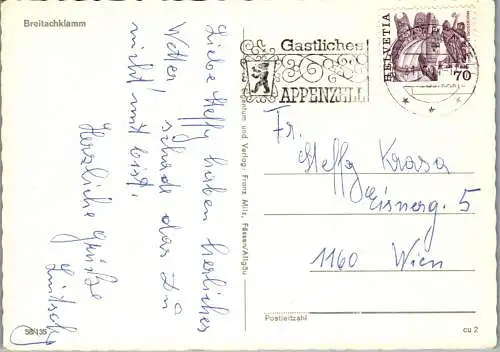 Breitachklamm
Liebe Steffy haben herrliches
Wetter, schade das Du
nicht mit bist.
Herzliche Grüße
58/135
Eigentum und Verlag: Franz Milz, Füssen/Allgäu
Gastliches
APPENZELL
HELVETIA
70
Fr.
Steffy Krasa
Eisnerg. 5
1160 Wien
Postleitzahl
cu 2